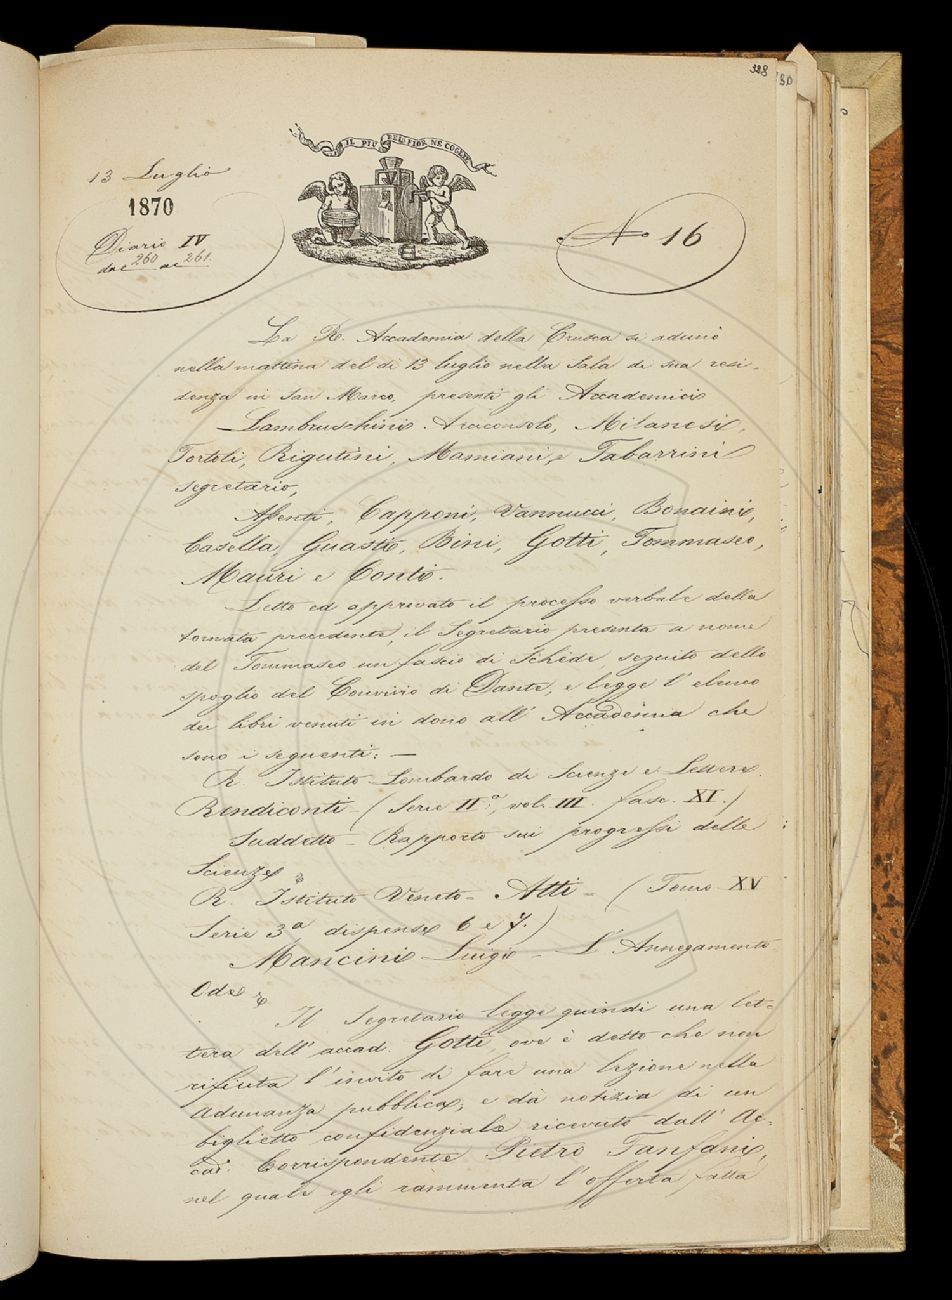 328
IL PIÙ BEL FIOR NE COGLIE
13 Luglio
1870
Diario IV
da c 260 a c 261.
N.o 16
La R. Accademia della Crusca si adunò
nella mattina del dì 13 luglio nella Sala di sua resi-
denza in San Marco, presenti gli Accademici
Lambruschini Arciconsolo, Milanesi,
Tortoli, Rigutini, Mamiani, e Tabarrini
segretario,
Assenti, Capponi, Vannucci, Bonaini,
Casella, Guasti, Bini, Gotti, Tommaseo,
Mauri e Conti.
Letto ed approvato il processo verbale della
tornata precedente, il Segretario presenta a nome
del Tommaseo un fascio di Schede, seguito dello
spoglio del Convivio di Dante, e legge l' elenco
dei libri venuti in dono all' Accademia che
sono i seguenti: —
R. Istituto Lombardo di Scienze e Lettere
Rendiconti - (Serie IIa, vol. III. fasc. XI.)
Suddetto - Rapporto sui progressi delle
Scienze
R. Istituto Veneto - Atti - (Tomo XV
Serie 3a dispense 6 e 7.)
Mancini Luigi - L' Annegamento
Ode
Il Segretario legge quindi una let-
tera dell' accad. Gotti, ove è detto che non
rifiuta l' invito di fare una lezione nella
Adunanza pubblica; e dà notizia di un
biglietto confidenziale ricevuto dall' Ac-
cad. Corrispondente Pietro Fanfani,
nel quale egli rammenta l' offerta fatta